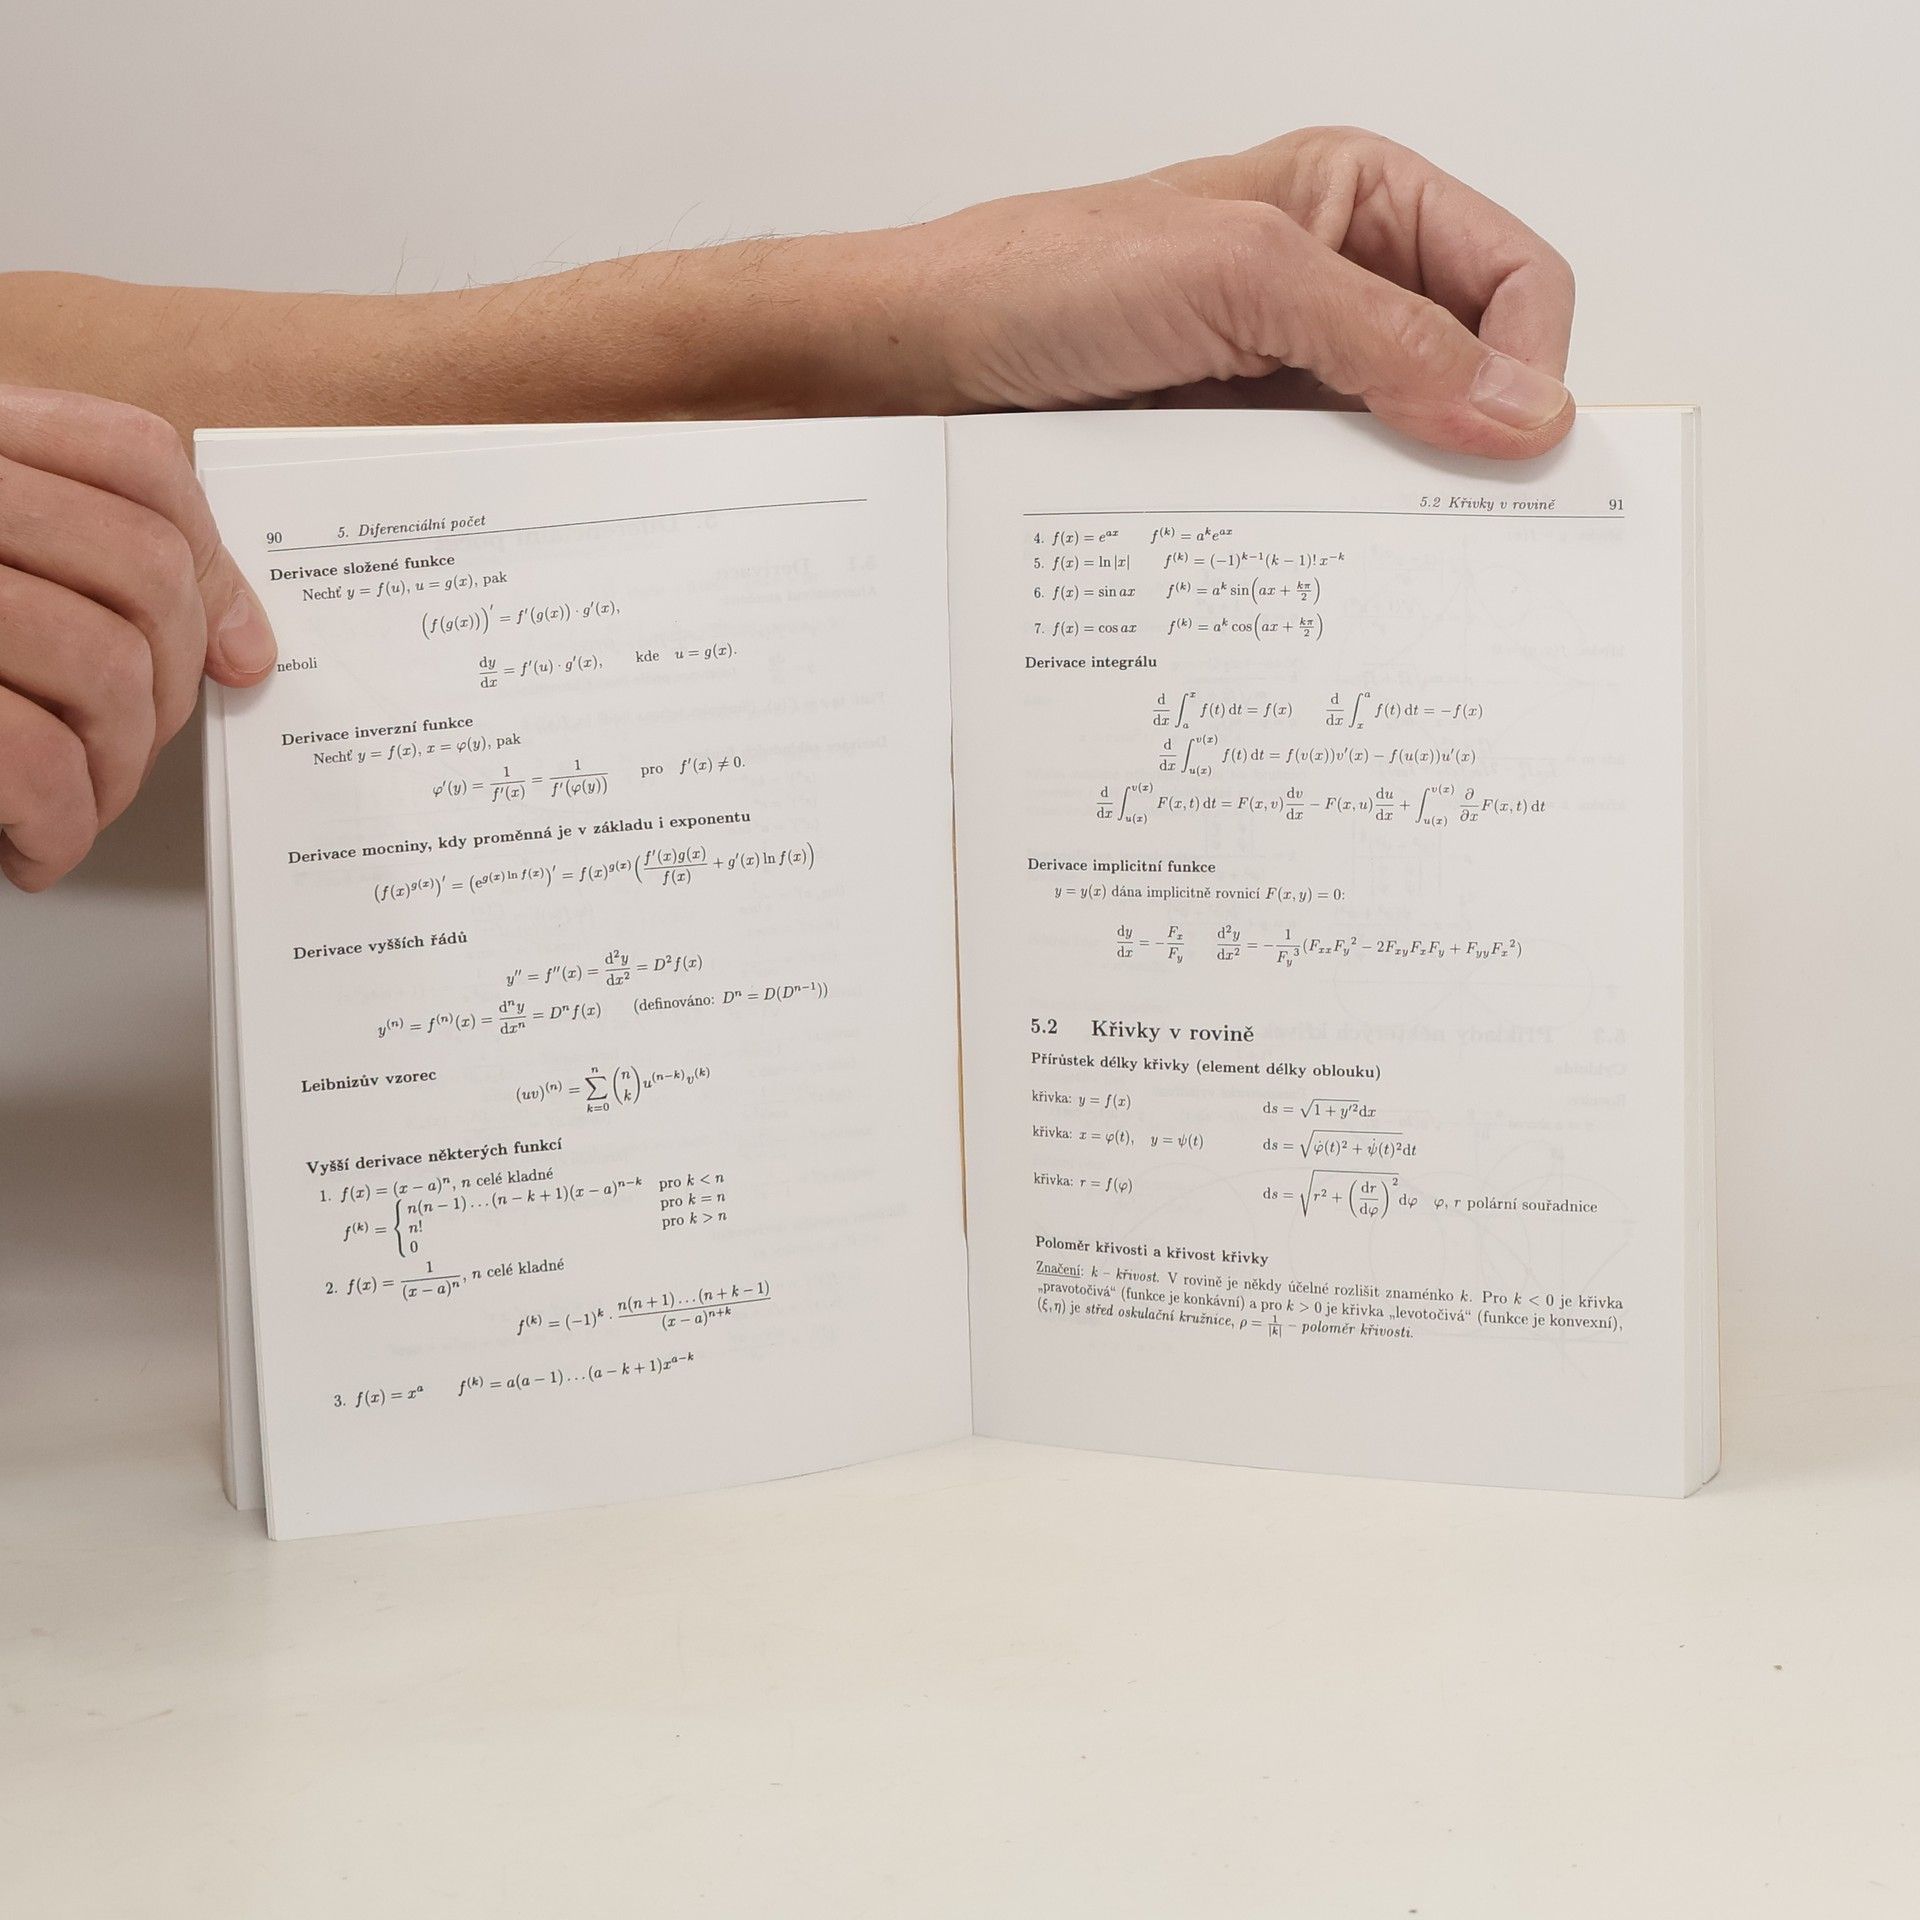 90 5. Diferenciální počet
Derivace složené funkce
Nechť y = f(u), u = g(x), pak
(f(g(x)))′ = f′(g(x)) · g′(x),
neboli dy/dx = f′(u) · g′(x), kde u = g(x).
Derivace inverzní funkce
Nechť y = f(x), x = φ(y), pak
φ′(y) = 1/f′(x) = 1/f′(φ(y)) pro f′(x) ≠ 0.
Derivace mocniny, kdy proměnná je v základu i exponentu
(f(x)^g(x))′ = (e^(g(x) ln f(x)))′ = f(x)^g(x) (f′(x)g(x)/f(x) + g′(x) ln f(x))
Derivace vyšších řádů
y″ = f″(x) = d²y/dx² = D²f(x)
y⁽ⁿ⁾ = f⁽ⁿ⁾(x) = dⁿy/dxⁿ = Dⁿf(x) (definováno: Dⁿ = D(Dⁿ⁻¹))
Leibnizův vzorec (uv)⁽ⁿ⁾ = ∑_{k=0}^{n} (n k) u^(n−k) v^(k)
Vyšší derivace některých funkcí
1. f(x) = (x − a)ⁿ, n celé kladné
f^(k) = { n(n − 1)…(n − k + 1)(x − a)^(n−k) pro k < n
n! pro k = n
0 pro k > n
2. f(x) = 1/(x − a)ⁿ, n celé kladné
f^(k) = (−1)^k · n(n + 1)…(n + k − 1)/(x − a)^(n+k)
3. f(x) = x^a f^(k) = a(a − 1)…(a − k + 1)x^(a−k)
5.2 Křivky v rovině 91
4. f(x) = e^(ax) f^(k) = a^k e^(ax)
5. f(x) = ln |x| f^(k) = (−1)^(k−1)(k − 1)! x^(−k)
6. f(x) = sin ax f^(k) = a^k sin(ax + kπ/2)
7. f(x) = cos ax f^(k) = a^k cos(ax + kπ/2)
Derivace integrálu
d/dx ∫_a^x f(t) dt = f(x) d/dx ∫_x^a f(t) dt = −f(x)
d/dx ∫_{u(x)}^{v(x)} f(t) dt = f(v(x))v′(x) − f(u(x))u′(x)
d/dx ∫_{u(x)}^{v(x)} F(x, t) dt = F(x, v) dv/dx − F(x, u) du/dx + ∫_{u(x)}^{v(x)} ∂/∂x F(x, t) dt
Derivace implicitní funkce
y = y(x) dána implicitně rovnicí F(x, y) = 0:
dy/dx = −F_x/F_y d²y/dx² = −1/F_y³ (F_xx F_y² − 2F_xy F_x F_y + F_yy F_x²)
5.2 Křivky v rovině
Přírůstek délky křivky (element délky oblouku)
křivka: y = f(x) ds = √(1 + y′²)dx
křivka: x = φ(t), y = ψ(t) ds = √(φ̇(t)² + ψ̇(t)²)dt
křivka: r = f(φ) ds = √(r² + (dr/dφ)²)dφ φ, r polární souřadnice
Poloměr křivosti a křivost křivky
Značení: k – křivost. V rovině je někdy účelné rozlišit znaménko k. Pro k < 0 je křivka
„pravotočivá“ (funkce je konkávní) a pro k > 0 je křivka „levotočivá“ (funkce je konvexní),
(ξ, η) je střed oskulační kružnice, ρ = 1/|k| – poloměr křivosti.